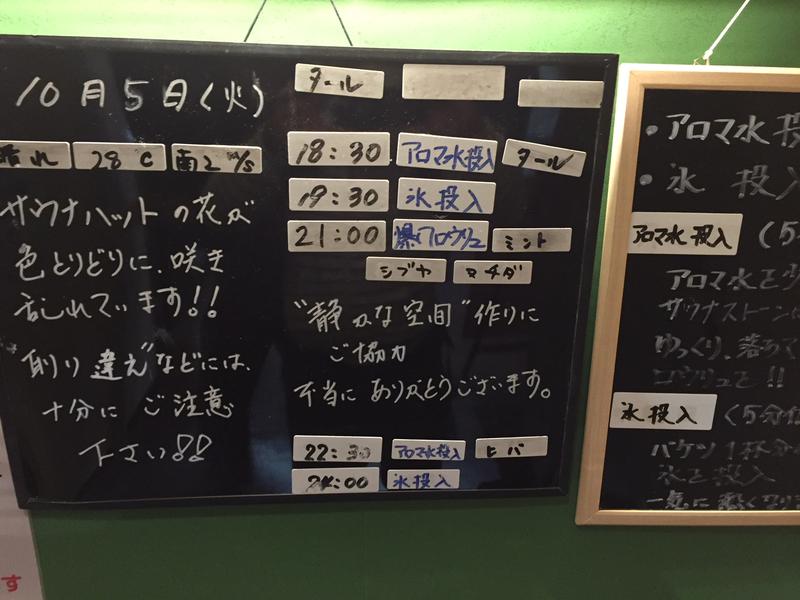 10月5日(火)
晴れ 28℃ 南2m/s
サウナハットの花が
色とりどりに、咲き
乱れています!!
"取り違え"などには、
十分に ご注意
下さい!!
タール
18:30 アロマ水投入 タール
19:30 氷投入
21:00 爆アロウリュ ミント
シブヤ マチダ
"静かな空間"作りに
ご協力
本当に ありがとうございます。
22:30 アロマ水投入 ヒバ
24:00 氷投入
・アロマ水投
・氷 投入
アロマ水投入 (5
アロマ水を
サウナストーンに
ゆっくり、落
ロウリュを!!
氷投入 (5分
バケツ1杯分
氷を投入
一気に
す